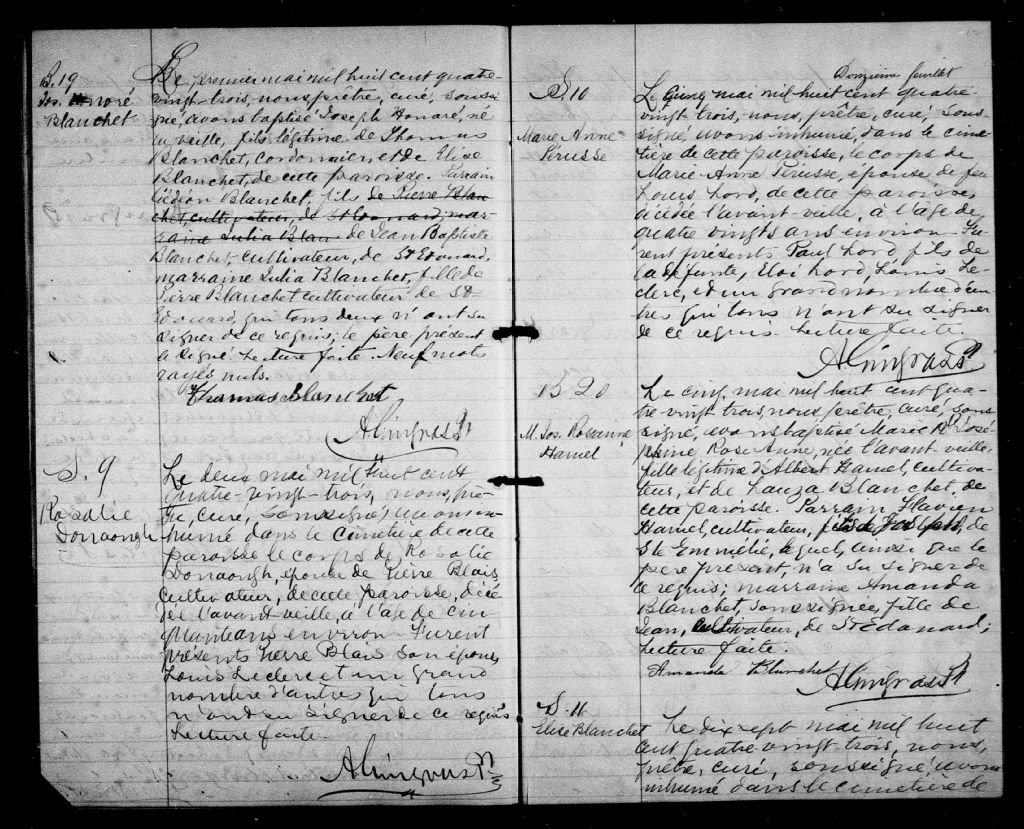 B. 19
Jos. Honoré
Blanchet
Le premier mai mil huit cent quatre-
vingt-trois, nous prêtre, curé, soussi-
gné, avons baptisé Joseph Honoré, né
la veille, fils légitime de Thomas
Blanchet, cordonnier, et de Elise
Blanchet, de cette paroisse. Parrain
Gédéon Blanchet, fils de Pierre Blan-
chet, cultivateur, de St Edouard, mar-
raine Julia Blan- de Jean Baptiste
Blanchet, cultivateur, de St Edouard,
marraine Julia Blanchet, fille de
Pierre Blanchet cultivateur de St
Edouard, qui tous deux n'ont su
signer de ce requis; le père présent
a signé. Lecture faite. Neuf mots
rayés nuls.
Thomas Blanchet
A Gingras Pt
S. 9
Rosalie
Donaongh
Le deux mai mil huit cent
quatre-vingt-trois, nous, prê-
tre, curé, soussigné, avons in-
humé dans le cimetière de cette
paroisse le corps de Rosalie
Donaongh, épouse de Pierre Blais,
cultivateur, de cette paroisse, décé-
dée l'avant veille, à l'âge de cin-
quante ans environ. Furent
présents Pierre Blais son époux,
Louis Leclerc et un grand
nombre d'autres qui tous
n'ont su signer de ce requis
Lecture faite.
A Gingras Pt
Douzième feuillet
S. 10
Marie Anne
Pérusse
Le cinq mai mil huit cent quatre-
vingt trois, nous, prêtre, curé, sous-
signé avons inhumé, dans le cime-
tière de cette paroisse, le corps de
Marie Anne Pérusse, épouse de feu
Louis Lord, de cette paroisse,
décédée l'avant-veille, à l'âge de
quatre vingts ans environ. Fu-
rent présents Paul Lord, fils de
la défunte, Eloi Lord, Louis Le-
clerc, et un grand nombre d'au-
tres qui tous n'ont su signer
de ce requis. Lecture faite.
A Gingras Pt
B 20
M. Jos. Roseanne
Hamel
Le cinq mai mil huit cent qua-
tre-vingt trois, nous prêtre, curé, sous-
signé, avons baptisé Marie José-
phine Rose Anne, née l'avant veille,
fille légitime d'Albert Hamel, cultiva-
teur, et de Lauza Blanchet, de
cette paroisse. Parrain Flavien
Hamel, cultivateur, fils de Joseph, de
Ste Emmélie, lequel, ainsi que le
père présent, n'a su signer de
ce requis; marraine Amanda
Blanchet, soussignée, fille de
Jean, cultivateur, de St Edouard;
Lecture faite.
Amanda Blanchet
A Gingras Pt
S. 11
Elise Blanchet
Le dix sept mai mil huit
cent quatre vingt trois, nous,
prêtre, curé, soussigné, avons
inhumé dans le cimetière de